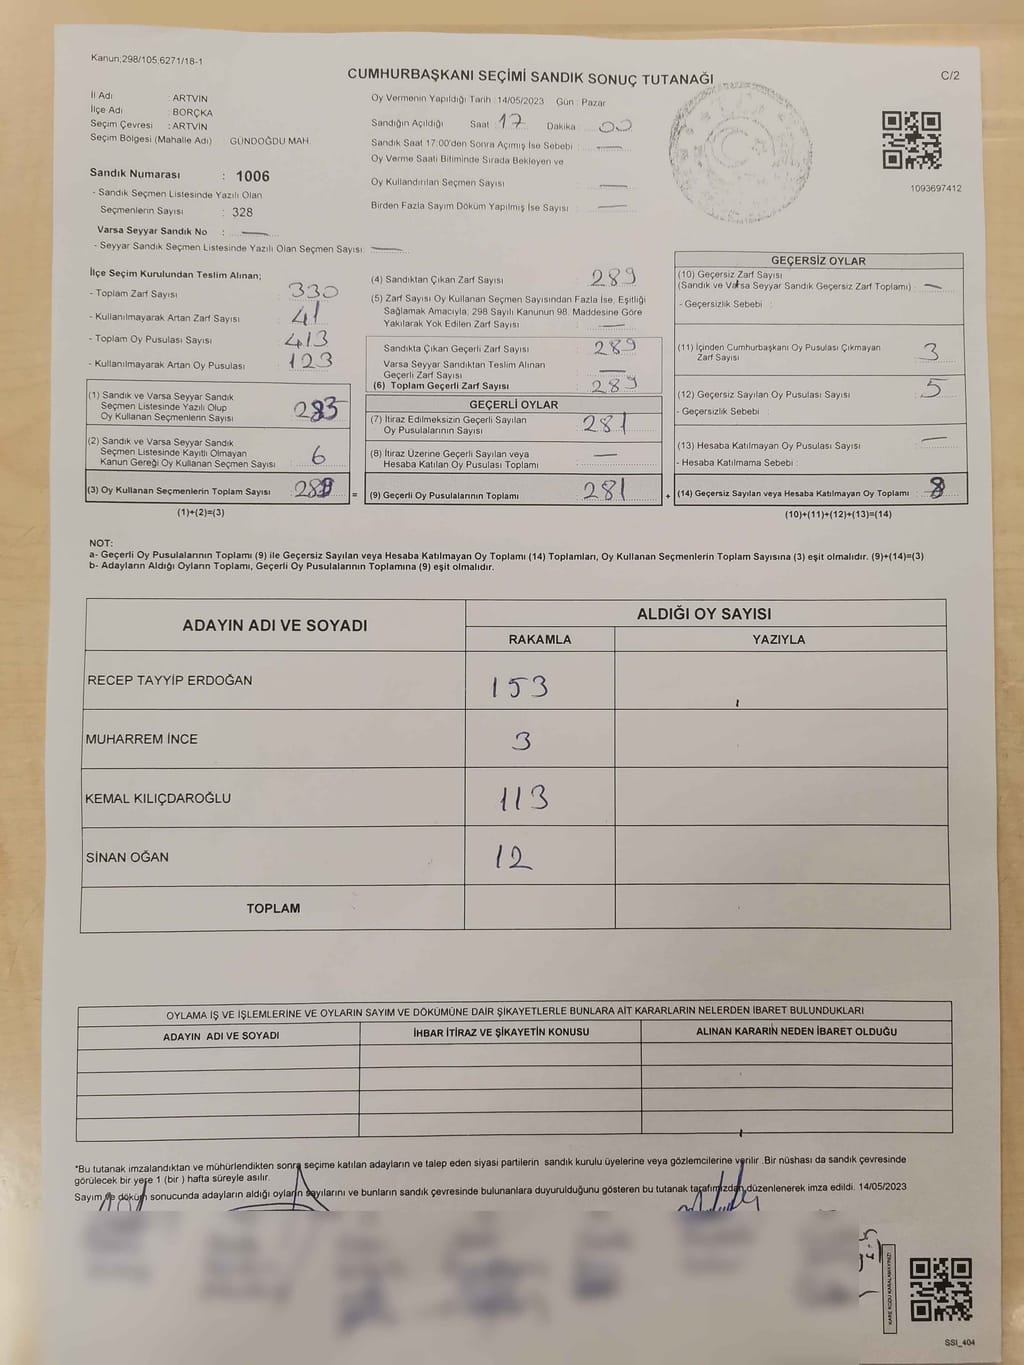 Kanun;298/105;6271/18-1
CUMHURBAŞKANI SEÇİMİ SANDIK SONUÇ TUTANAĞI
C/2
İl Adı : ARTVİN
İlçe Adı : BORÇKA
Seçim Çevresi : ARTVİN
Seçim Bölgesi (Mahalle Adı) GÜNDOĞDU MAH.
Sandık Numarası : 1006
- Sandık Seçmen Listesinde Yazılı Olan
Seçmenlerin Sayısı : 328
Varsa Seyyar Sandık No :
- Seyyar Sandık Seçmen Listesinde Yazılı Olan Seçmen Sayısı:
Oy Vermenin Yapıldığı Tarih :14/05/2023 Gün : Pazar
Sandığın Açıldığı Saat : 17 Dakika : 00
Sandık Saat 17:00'den Sonra Açımış İse Sebebi :
Oy Verme Saati Bitiminde Sırada Bekleyen ve
Oy Kullandırılan Seçmen Sayısı
Birden Fazla Sayım Döküm Yapılmış İse Sayısı :
1093697412
İlçe Seçim Kurulundan Teslim Alınan;
- Toplam Zarf Sayısı : 330
- Kullanılmayarak Artan Zarf Sayısı : 41
- Toplam Oy Pusulası Sayısı : 413
- Kullanılmayarak Artan Oy Pusulası : 123
(1) Sandık ve Varsa Seyyar Sandık
Seçmen Listesinde Yazılı Olup
Oy Kullanan Seçmenlerin Sayısı : 283
(2) Sandık ve Varsa Seyyar Sandık
Seçmen Listesinde Kayıtlı Olmayan
Kanun Gereği Oy Kullanan Seçmen Sayısı : 6
(3) Oy Kullanan Seçmenlerin Toplam Sayısı : 289
(1)+(2)=(3)
(4) Sandıktan Çıkan Zarf Sayısı : 289
(5) Zarf Sayısı Oy Kullanan Seçmen Sayısından Fazla İse, Eşitliği
Sağlamak Amacıyla, 298 Sayılı Kanunun 98. Maddesine Göre
Yakılarak Yok Edilen Zarf Sayısı :
Sandıkta Çıkan Geçerli Zarf Sayısı : 289
Varsa Seyyar Sandıktan Teslim Alınan
Geçerli Zarf Sayısı
(6) Toplam Geçerli Zarf Sayısı : 289
GEÇERLİ OYLAR
(7) İtiraz Edilmeksizin Geçerli Sayılan
Oy Pusulalarının Sayısı : 281
(8) İtiraz Üzerine Geçerli Sayılan veya
Hesaba Katılan Oy Pusulası Toplamı :
= (9) Geçerli Oy Pusulalarının Toplamı : 281
GEÇERSİZ OYLAR
(10) Geçersiz Zarf Sayısı
(Sandık ve Varsa Seyyar Sandık Geçersiz Zarf Toplamı) :
- Geçersizlik Sebebi :
(11) İçinden Cumhurbaşkanı Oy Pusulası Çıkmayan
Zarf Sayısı : 3
(12) Geçersiz Sayılan Oy Pusulası Sayısı : 5
- Geçersizlik Sebebi :
(13) Hesaba Katılmayan Oy Pusulası Sayısı :
- Hesaba Katılmama Sebebi :
+ (14) Geçersiz Sayılan veya Hesaba Katılmayan Oy Toplamı : 8
(10)+(11)+(12)+(13)=(14)
NOT:
a- Geçerli Oy Pusulalarının Toplamı (9) ile Geçersiz Sayılan veya Hesaba Katılmayan Oy Toplamı (14) Toplamları, Oy Kullanan Seçmenlerin Toplam Sayısına (3) eşit olmalıdır. (9)+(14)=(3)
b- Adayların Aldığı Oyların Toplamı, Geçerli Oy Pusulalarının Toplamına (9) eşit olmalıdır.
ADAYIN ADI VE SOYADI
ALDIĞI OY SAYISI
RAKAMLA YAZIYLA
RECEP TAYYİP ERDOĞAN 153
MUHARREM İNCE 3
KEMAL KILIÇDAROĞLU 113
SİNAN OĞAN 12
TOPLAM
OYLAMA İŞ VE İŞLEMLERİNE VE OYLARIN SAYIM VE DÖKÜMÜNE DAİR ŞİKAYETLERLE BUNLARA AİT KARARLARIN NELERDEN İBARET BULUNDUKLARI
ADAYIN ADI VE SOYADI İHBAR İTİRAZ VE ŞİKAYETİN KONUSU ALINAN KARARIN NEDEN İBARET OLDUĞU
*Bu tutanak imzalandıktan ve mühürlendikten sonra seçime katılan adayların ve talep eden siyasi partilerin sandık kurulu üyelerine veya gözlemcilerine verilir .Bir nüshası da sandık çevresinde
görülecek bir yere 1 (bir ) hafta süreyle asılır.
Sayım ve döküm sonucunda adayların aldığı oyların sayılarını ve bunların sandık çevresinde bulunanlara duyurulduğunu gösteren bu tutanak tarafımızdan düzenlenerek imza edildi. 14/05/2023
KARE KODU KARALAMAYINIZ!
SSİ_404